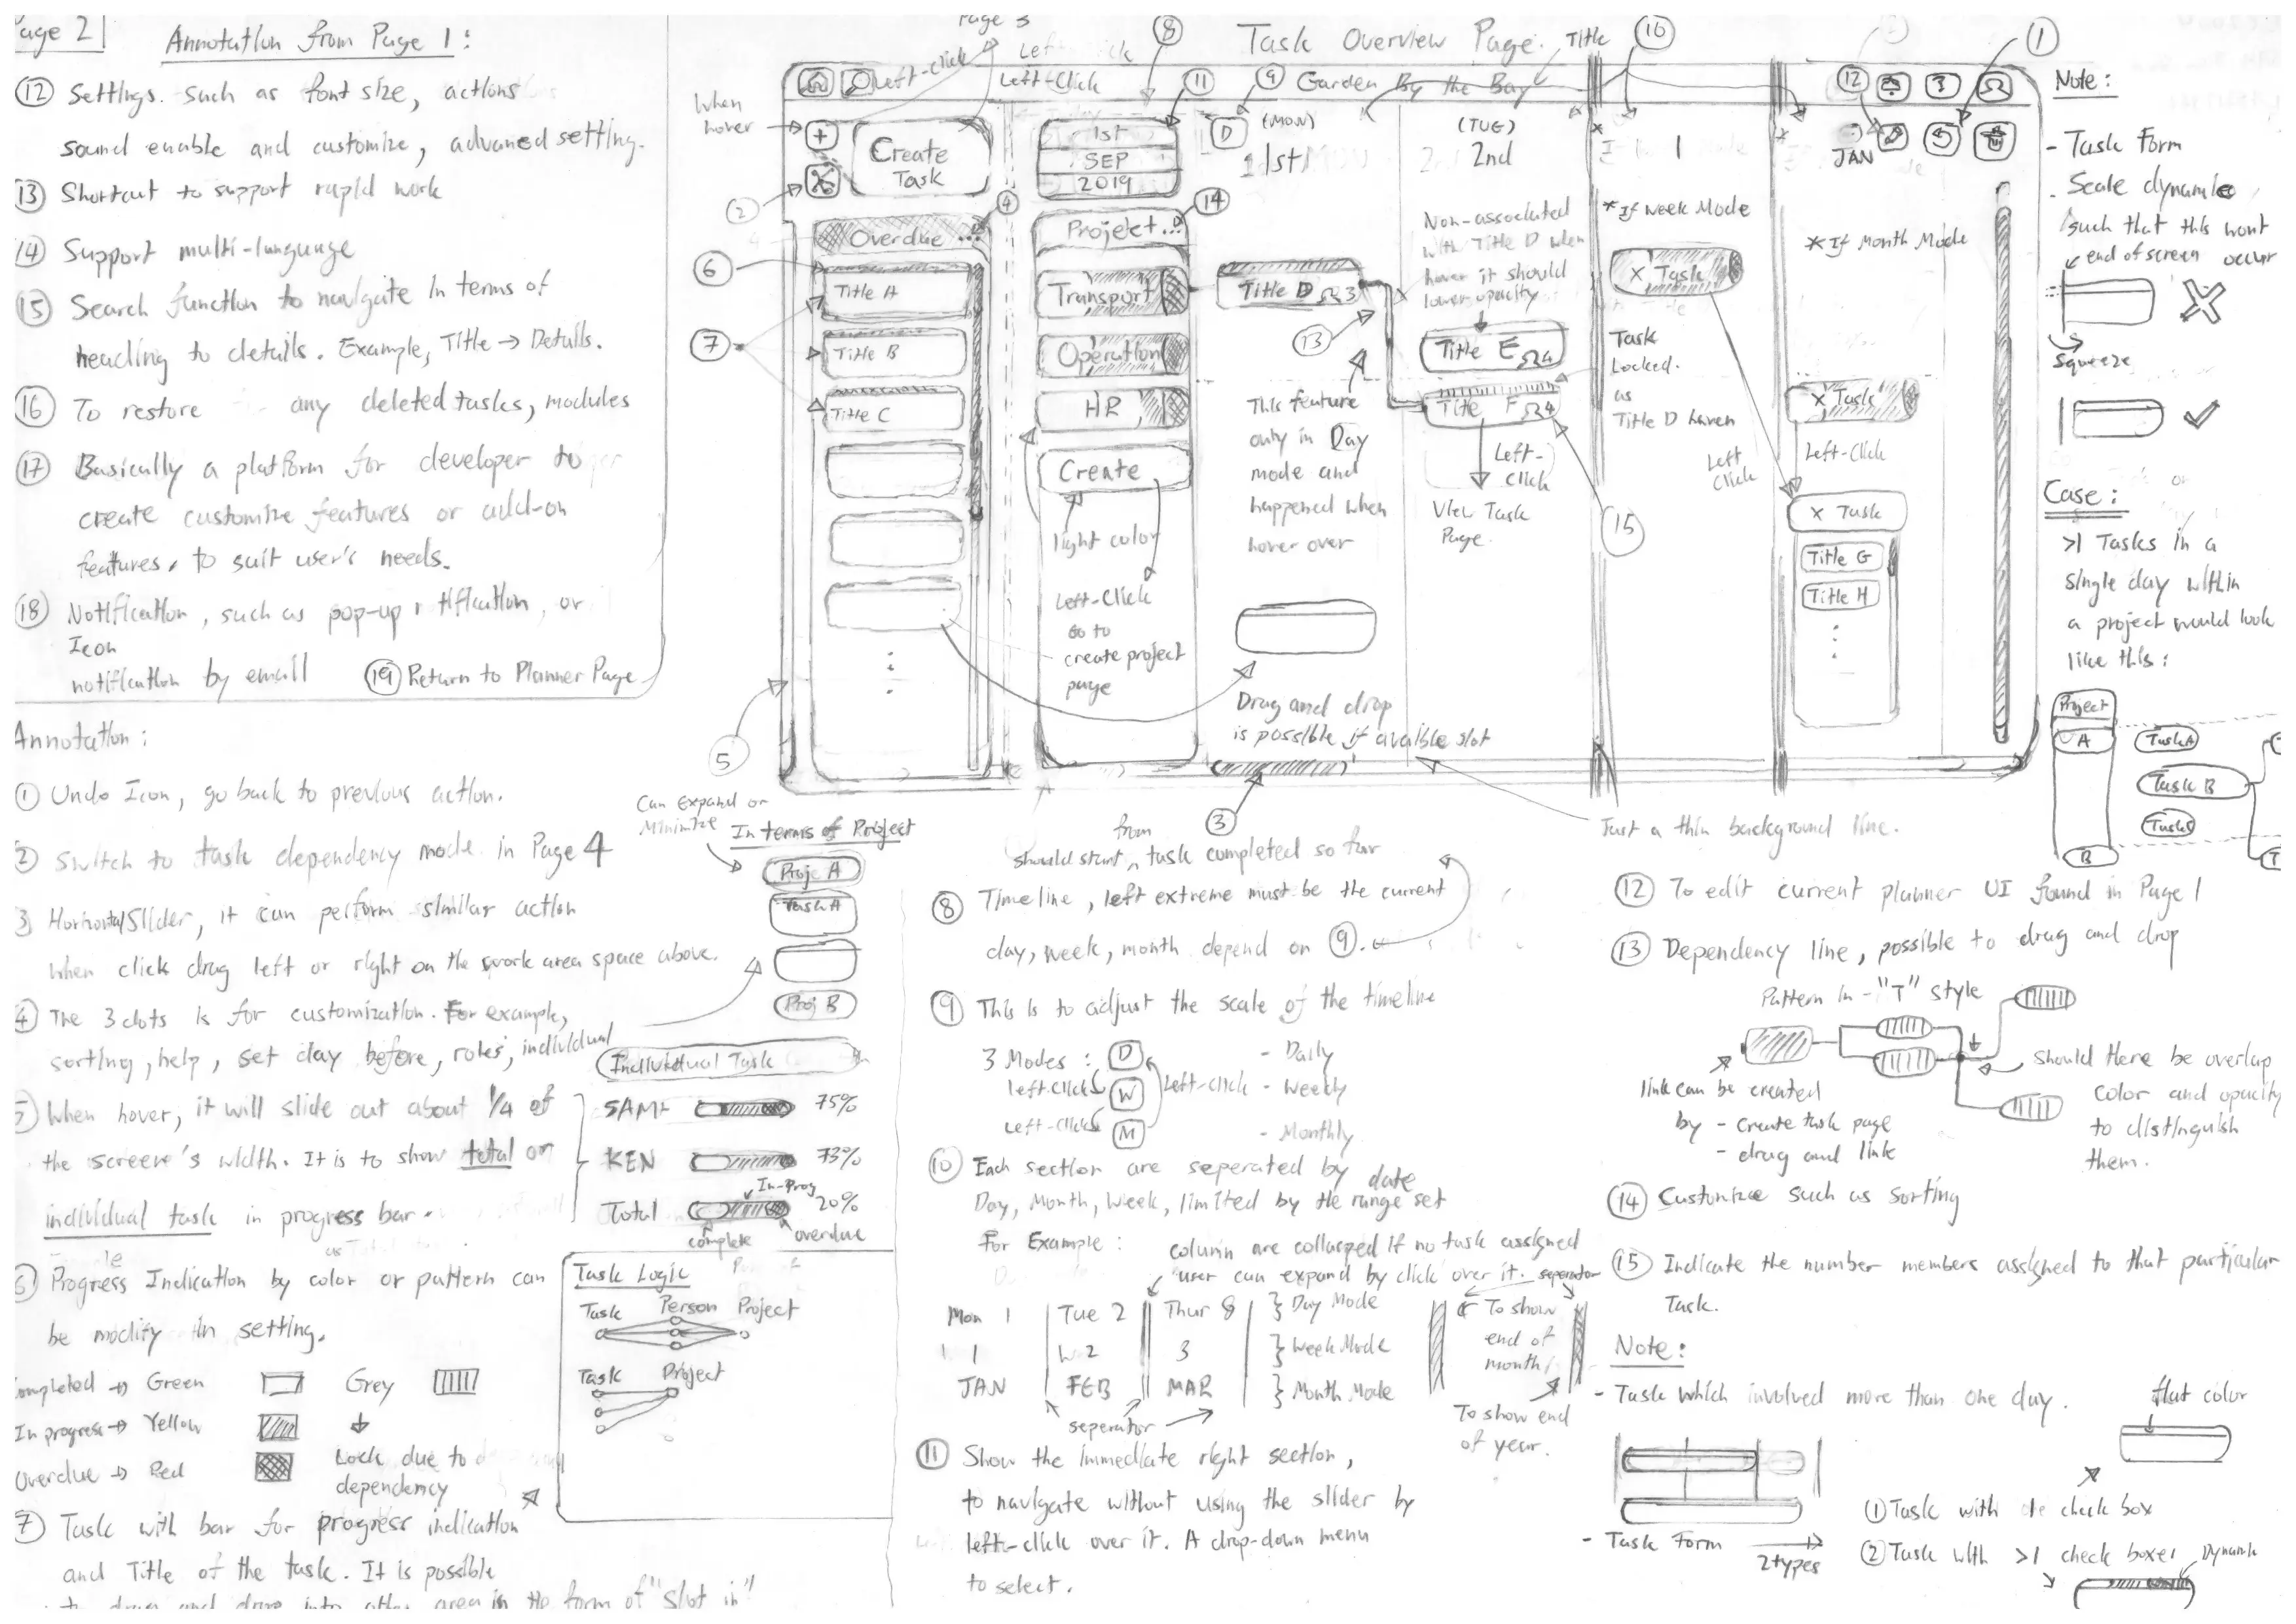 Page 2
Annotation from Page 1:
(12) Settings. Such as font size, actions
sound enable and customize, advanced setting.
(13) Shortcut to support rapid work
(14) Support multi-language
(15) Search function to navigate in terms of
heading to details. Example, Title → Details.
(16) To restore any deleted tasks, modules
(17) Basically a platform for developer to
create customize features or add-on
features, to suit user's needs.
(18) Notification, such as pop-up, or
Icon
notification by email
(19) Return to Planner Page
Task Overview Page.
Page 3
Left-click
Left-Click
When
hover
Garden By the Bay
Title
Create
Task
1st
SEP
2019
D
(MON)
1st
(TUE)
2nd
1
JAN
Overdue ...
Title A
Title B
Title C
Project...
Transport
Operation
HR
Create
light color
Left-Click
Go to
create project
page
Title D 3
Non-associated
with Title D when
hover it should
lower opacity
Title E 4
Title F 4
This feature
only in Day
mode and
happened when
hover over
Left-
Click
View Task
Page.
Drag and drop
is possible if avaible slot
*If Week Mode
X Task
Task
Locked.
as
Title D haven
Left
Click
*If Month Mode
X Task
Left-Click
X Task
Title G
Title H
Just a thin background line.
Note:
- Task Form
Scale dynamic
such that this wont
occur
end of screen
Squeeze
Case:
>1 Tasks in a
single day within
a project would look
like this:
Project
A
Task A
Task B
B
Annotation:
(1) Undo Icon, go back to previous action.
(2) Switch to task dependency mode in Page 4
(3) Horizontal Slider, it can perform similar action
when click drag left or right on the work area space above.
(4) The 3 dots is for customization. For example,
sorting, help, set day before, roles, individual
(5) When hover, it will slide out about 1/4 of
the screen's width. It is to show total or
individual task in progress bar.
(6) Progress Indication by color or pattern can
be modify in setting.
Completed → Green
Grey
In progress → Yellow
Overdue → Red
Lock due to
dependency
(7) Task with bar for progress indication
and Title of the task. It is possible
to drag and drop into other area in the form of "slot in"
Can Expand or
Minimize
In terms of Project
Proj A
Task A
Proj B
Individual Task
SAM 75%
KEN 73%
In-Prog
Total 20%
complete
overdue
Task Logic
Task Person Project
Task Project
from
should start, task completed so far
(8) Timeline, left extreme must be the current
day, week, month depend on (9).
(9) This is to adjust the scale of the timeline
3 Modes: D - Daily
left-click W Left-click - Weekly
Left-click M - Monthly
(10) Each section are seperated by date
Day, Month, Week, limited by the range set
For Example:
column are collasped if no task assigned
user can expand by click over it.
seperator
Mon 1 Tue 2 Thur 8 } Day Mode
1 2 3 } Week Mode
JAN FEB MAR } Month Mode
seperator
To show
end of
month
To show end
of year.
(11) Show the immediate right section,
to navigate without using the slider by
left-click over it. A drop-down menu
to select.
(12) To edit current planner UI found in Page 1
(13) Dependency line, possible to drag and drop
Pattern in "T" style
link can be created
by - create task page
- drag and link
Should there be overlap
color and opacity
to distinguish
them.
(14) Customize such as sorting
(15) Indicate the number members assigned to that particular
Task.
Note:
- Task which involved more than one day.
flat color
- Task Form
2 types
(1) Task with check box
(2) Task with >1 check boxes
Dynamic